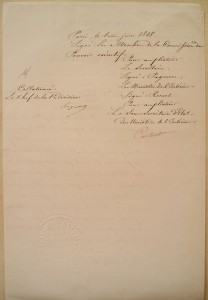 Paris, le
Signé les Membres de la Commission du
Pouvoir exécutif
Pour ampliation
Le Secrétaire
Signé: Pagnerre
Le Ministre de l'Intérieur
Signé: Recurt
Pour ampliation
Le Sous-Secrétaire d'Etat
du Ministère de l'Intérieur
Collationné
Le Chef de la Division